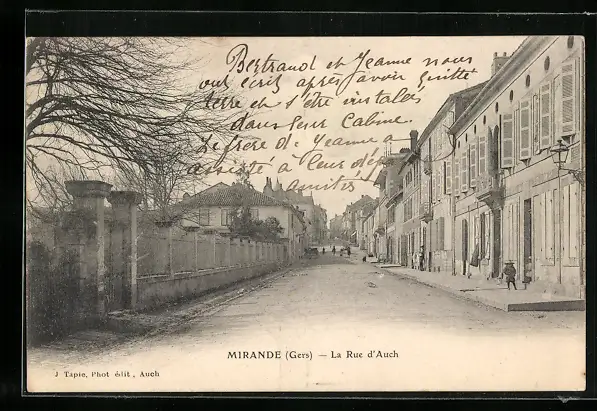 Bertrand et Jeanne nous
ont écrit après avoir quitté
terre et s'être installés
dans leur Cabine.
Le frère de Jeanne a
assisté à leur dép
Amitiés
MIRANDE (Gers) — La Rue d'Auch
J Tapie, Phot édit, Auch